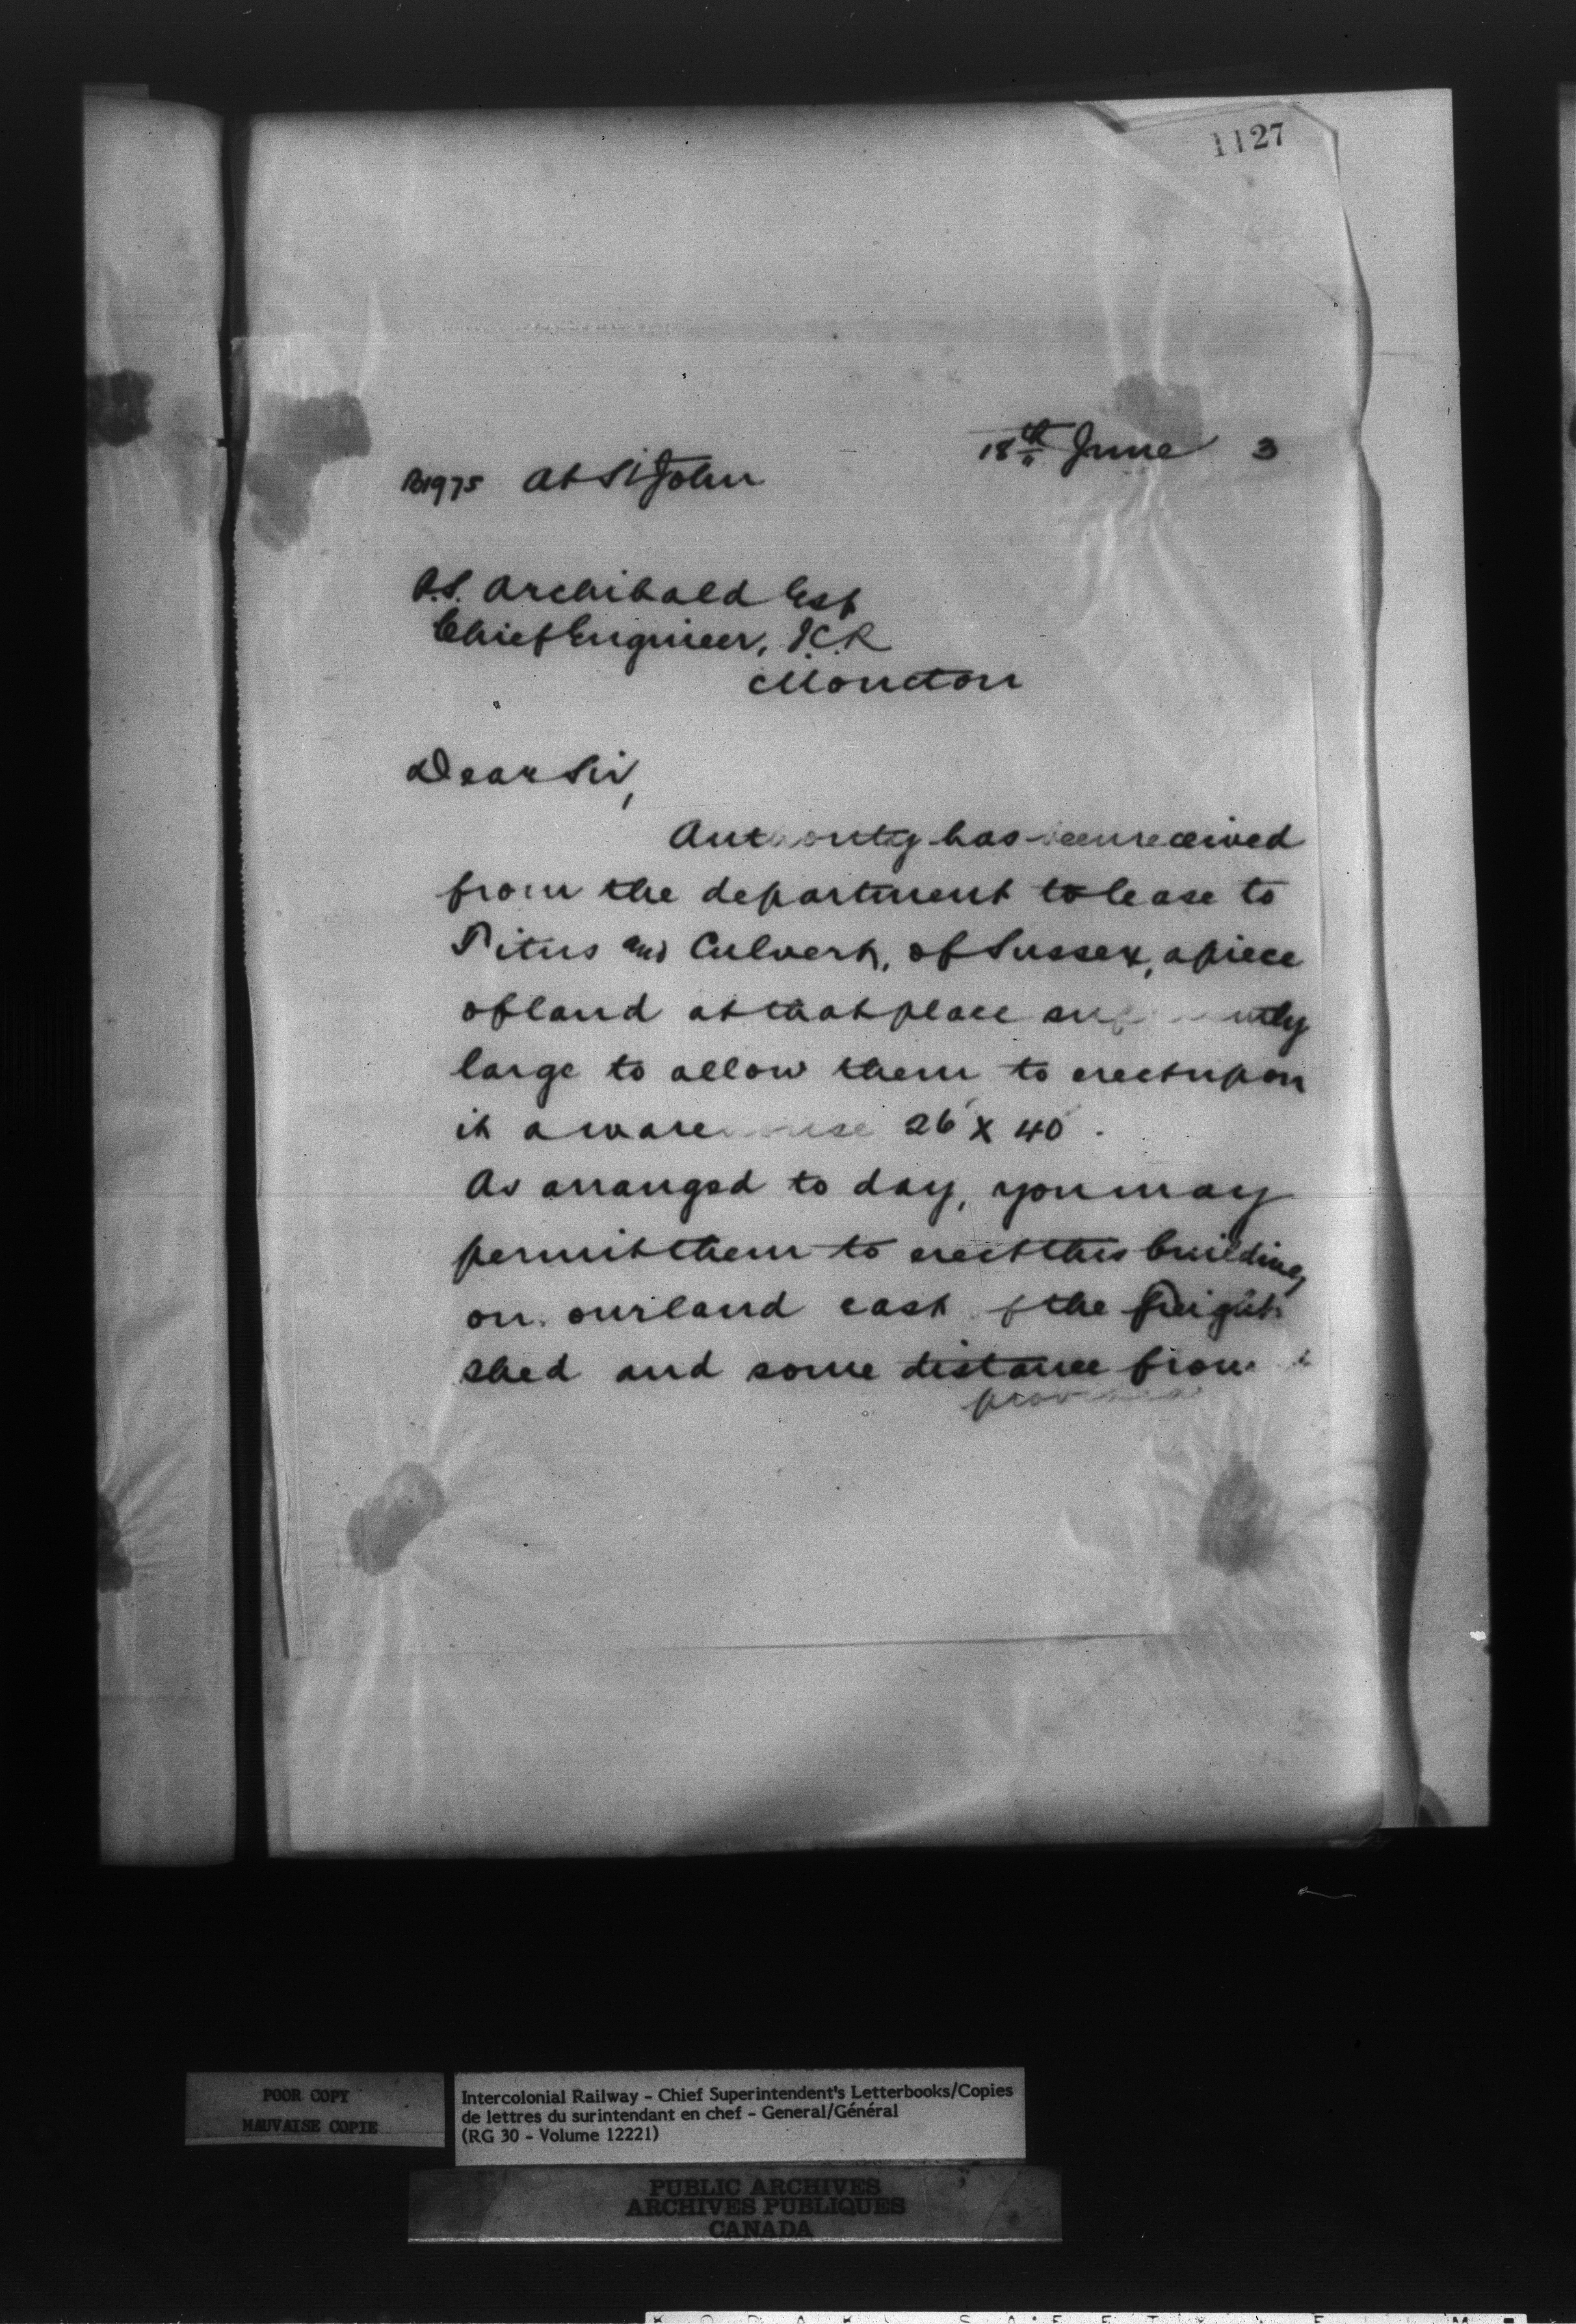 1127
18th June 3
B1975 At St John
P.S. Archibald Esq
Chief Engineer, I.C.R
Moncton
Dear Sir,
Authority has been received
from the department to lease to
Titus and Culvert, of Sussex, a piece
of land at that place sufficiently
large to allow them to erect upon
it a warehouse 26' x 40'.
As arranged to day, you may
permit them to erect this building
on our land east of the freight
shed and some distance from it
provided
POOR COPY
MAUVAISE COPIE
Intercolonial Railway - Chief Superintendent's Letterbooks/Copies
de lettres du surintendant en chef - General/Général
(RG 30 - Volume 12221)
PUBLIC ARCHIVES
ARCHIVES PUBLIQUES
CANADA